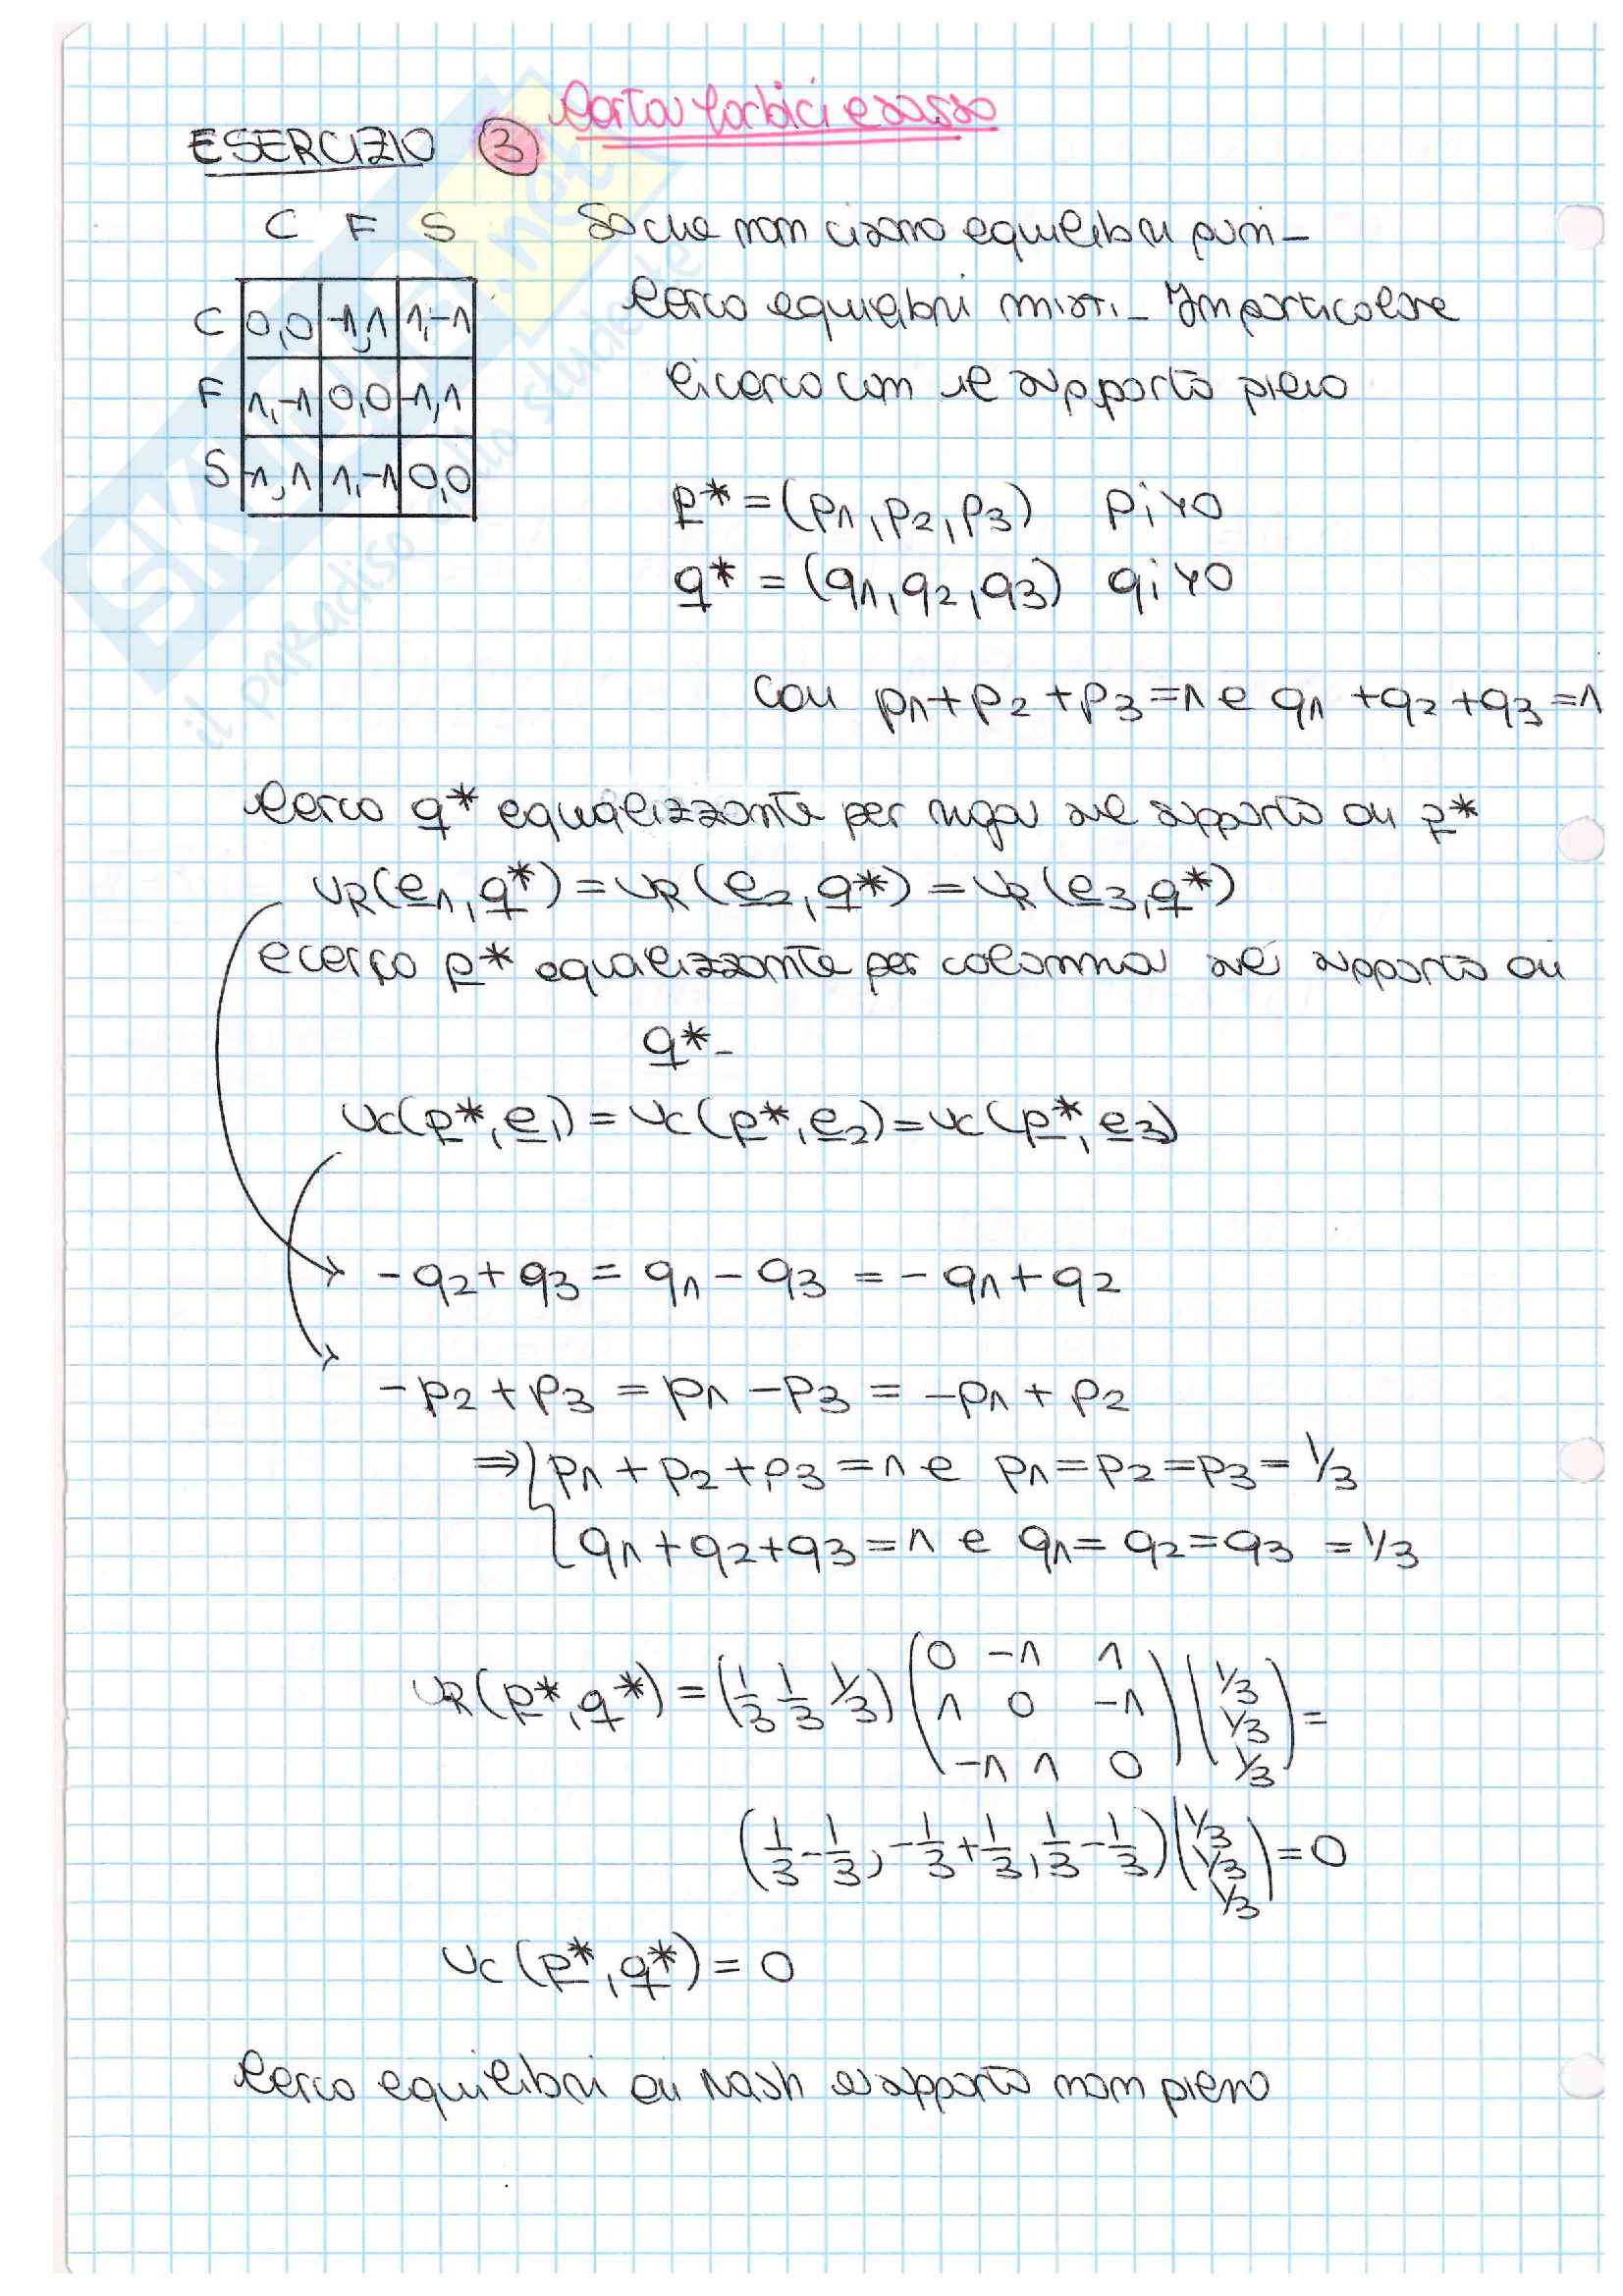 Carta forbici e sasso
ESERCIZIO 3
C F S
So che non ci sono equilibri puri -
C 0,0 -1,1 1,-1
Cerco equilibri misti - In particolare
F 1,-1 0,0 -1,1
li cerco con il supporto pieno
S -1,1 1,-1 0,0
p* = (p1, p2, p3) pi>0
q* = (q1, q2, q3) qi>0
con p1+p2+p3=1 e q1+q2+q3=1
Cerco q* equalizzante per riga sul supporto di p*
UR(e1, q*) = UR(e2, q*) = UR(e3, q*)
e cerco p* equalizzante per colonna sul supporto di
q* -
UC(p*, e1) = UC(p*, e2) = UC(p*, e3)
→ -q2+q3 = q1-q3 = -q1+q2
→ -p2+p3 = p1-p3 = -p1+p2
⇒ { p1+p2+p3=1 e p1=p2=p3=1/3
q1+q2+q3=1 e q1=q2=q3=1/3
UR(p*, q*) = (1/3 1/3 1/3) (0 -1 1 (1/3
1 0 -1 1/3 =
-1 1 0) 1/3)
(1/3-1/3, -1/3+1/3, 1/3-1/3) (1/3 1/3 1/3) = 0
UC(p*, q*) = 0
Cerco equilibri di Nash a supporto non pieno
SKUOLA.net
il paradiso dello studente